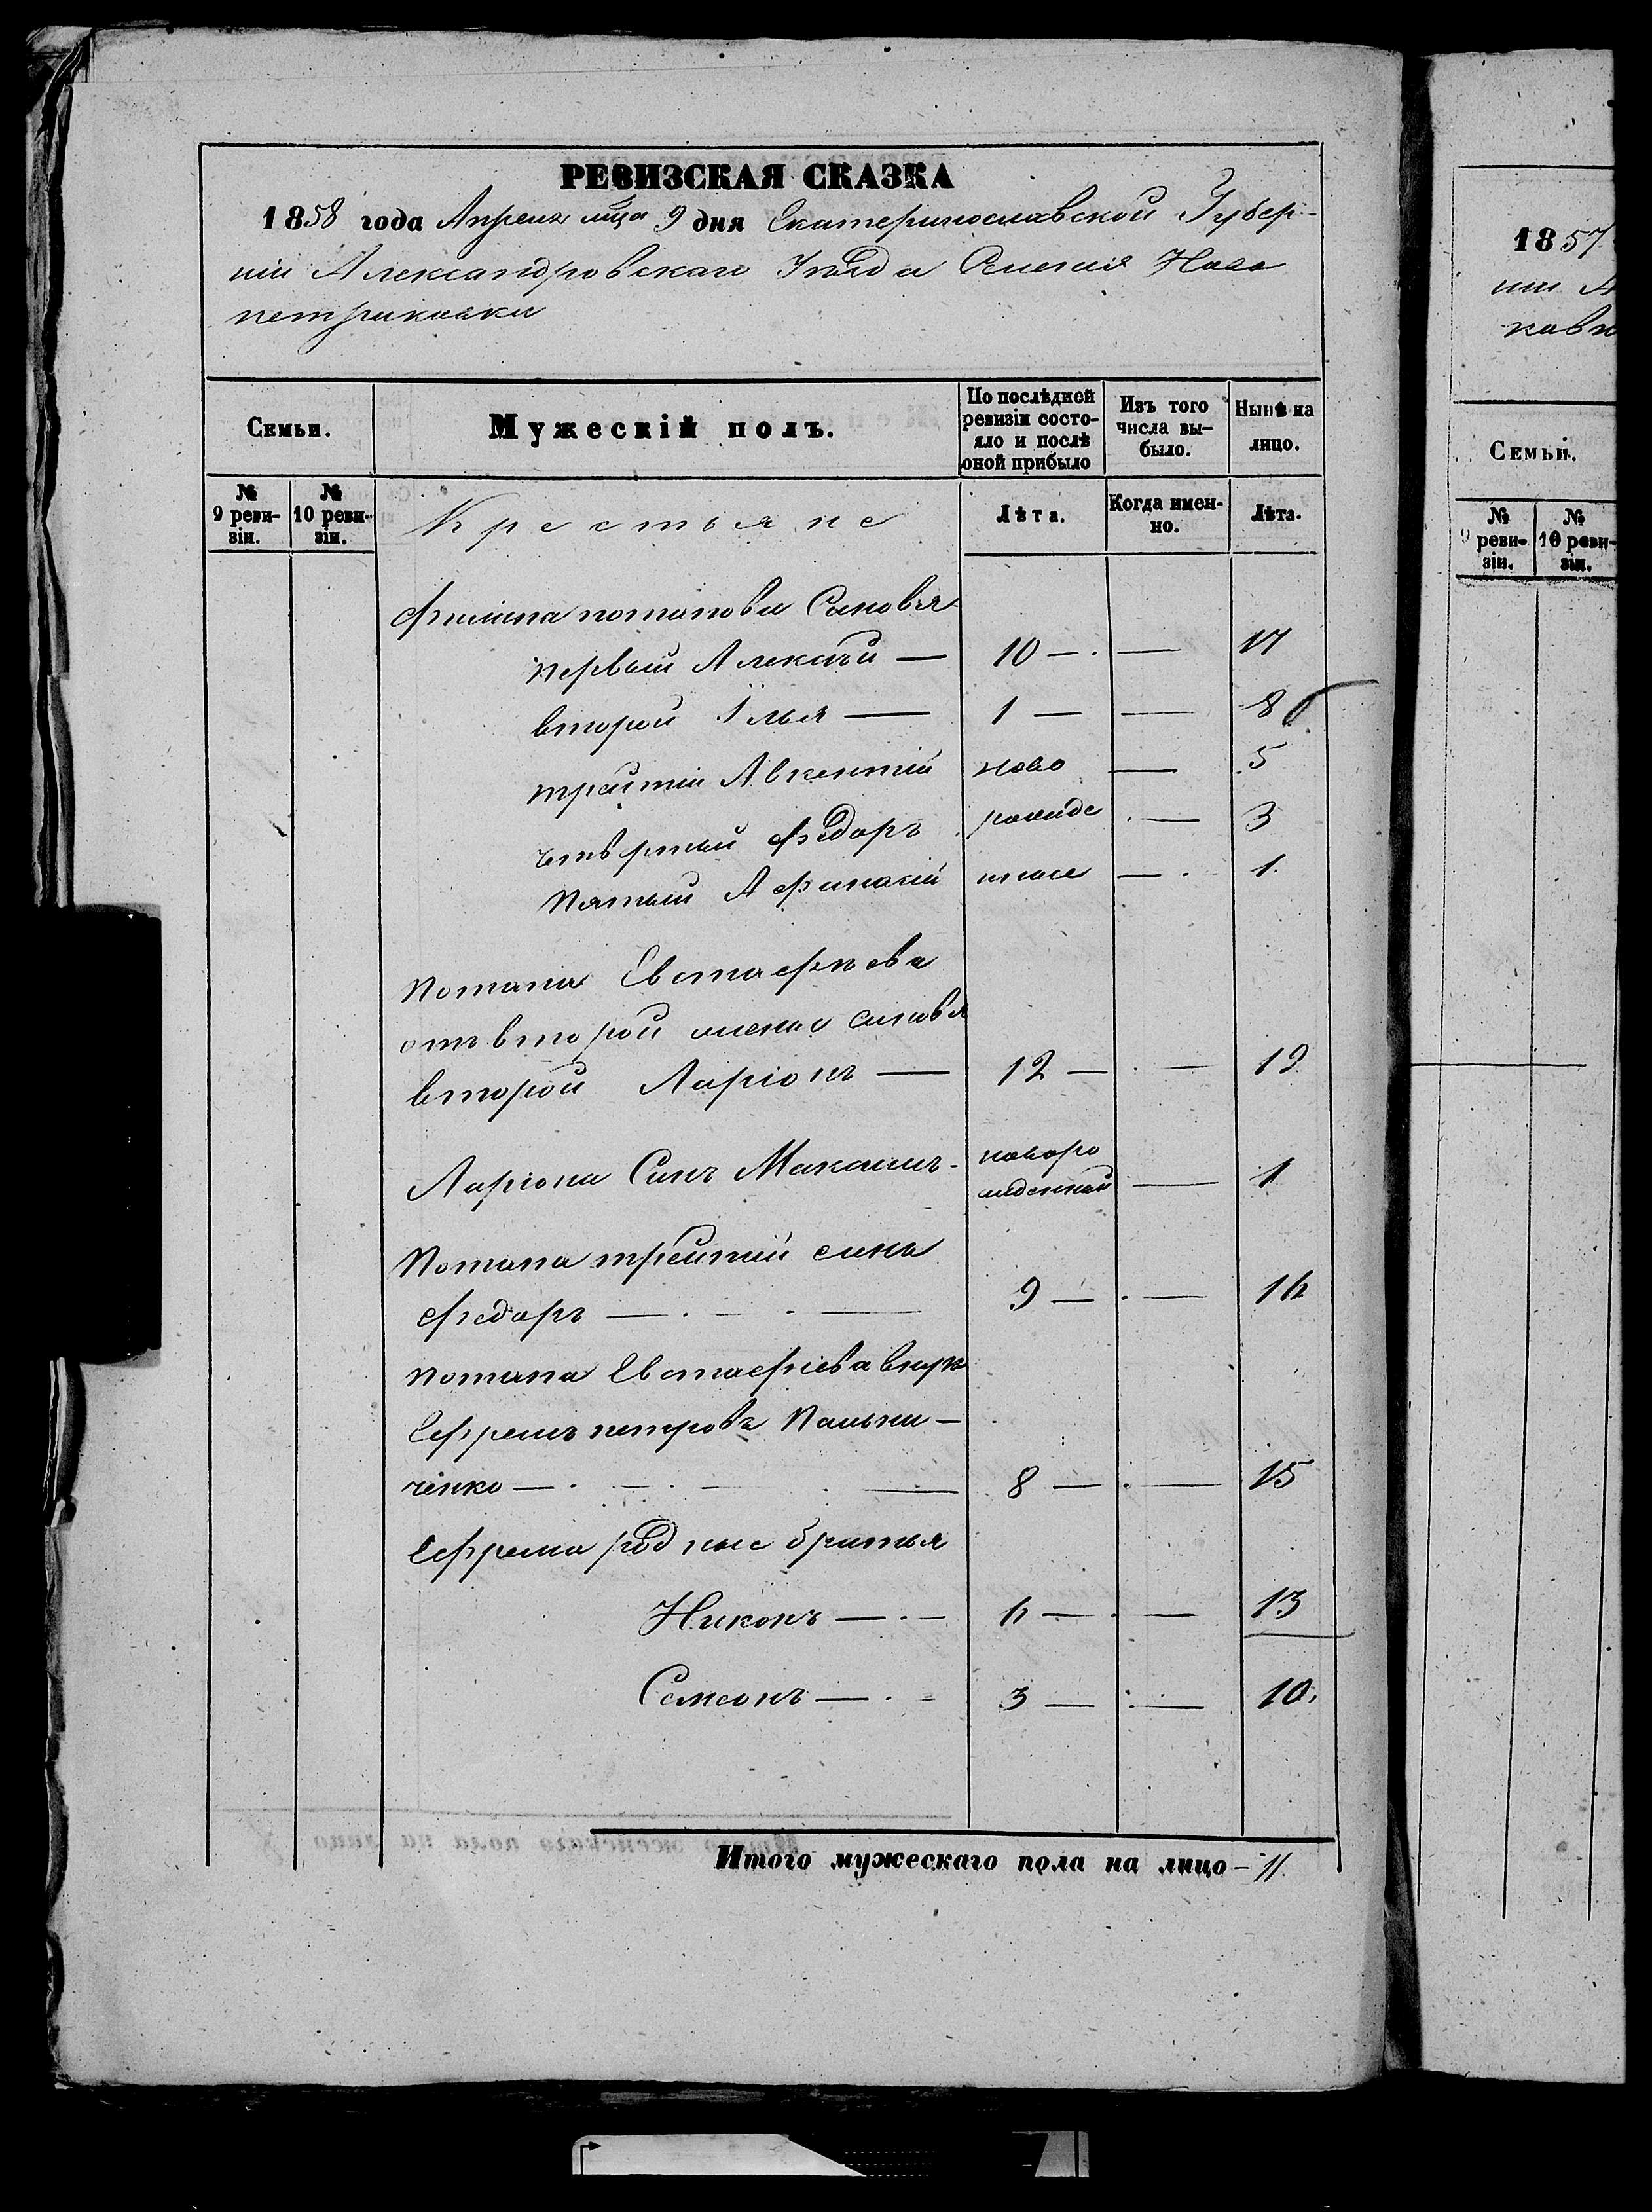 РЕВИЗСКАЯ СКАЗКА
1858 года Апреля мца 9 дня Екатеринославской Губер-
ніи Александровскаго Уѣзда Селенія Ново
петриковки
Семьи.
Мужескій полъ.
По послѣдней ревизіи состо-яло и послѣ оной прибыло
Изъ того числа вы-было.
Нынѣ на лицо.
№ 9 реви-зіи.
№ 10 реви-зіи.
Крестьяне
Лѣта.
Когда имен-но.
Лѣта.
Филипа потапова Синовья
первый Алексѣй — 10 — — 17
второй Илья — 1 — — 8
третій Авксентій ново — 5
четвертый Федоръ рожде — 3
Пятый Афинасій нные — 1.
Потапа Евстафьева
отъ второй жены синовья
второй Ларіонъ — 12 — — 19
Ларіона Синъ Максимъ - новоро
жденный — 1
Потапа третий сынъ
Федоръ — 9 — — 16
Потапа Евстафіева внукъ
Ефремъ петровъ Пальни-
ченко — 8 — — 15
Ефрема родные братья
Никонъ — 6 — — 13
Семенъ — 3 — — 10.
Итого мужескаго пола на лицо - 11.
1857
нии А
ковк
Семьи.
№ 9 реви-зіи.
№ 10 реви-зіи.